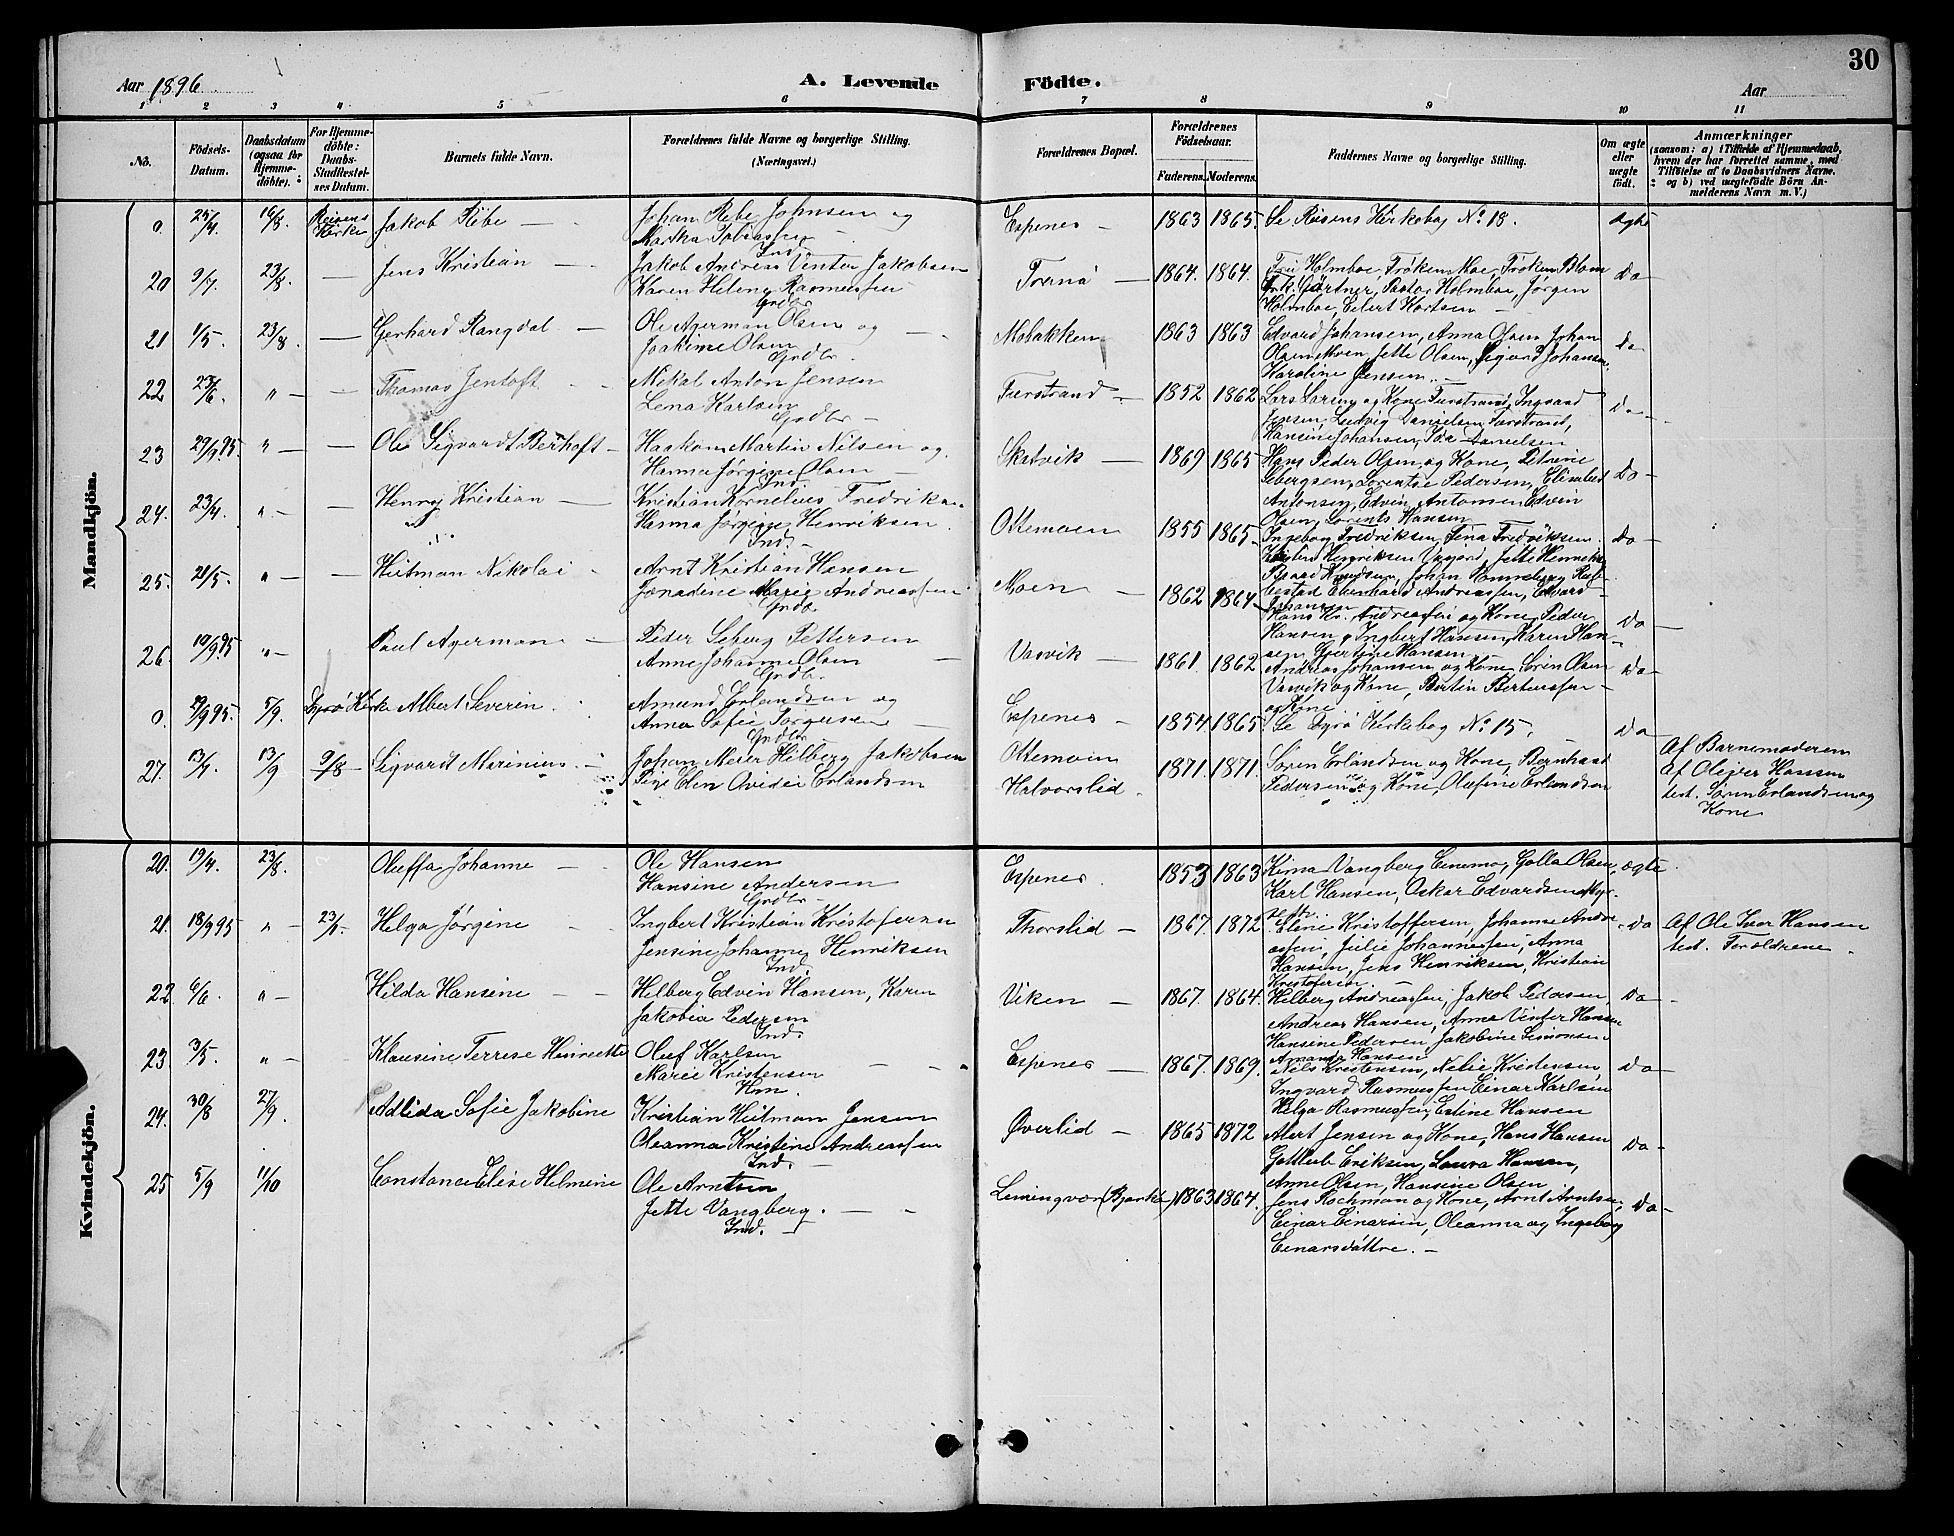 30
Aar 1896
A. Levende Födte.
Aar
1 2 3 4 5 6 7 8 9 10 11
No.
Födsels-Datum.
Daabsdatum (ogsaa for Hjemme-döbte).
For Hjemme-döbte: Daabs-Stadfæstel-ses Datum.
Barnets fulde Navn.
Forældrenes fulde Navne og borgerlige Stilling. (Næringsvei.)
Forældrenes Bopæl.
Forældrenes Födselsaar. Faderens. Moderens.
Faddernes Navne og borgerlige Stilling.
Om ægte eller uægte födt.
Anmærkninger (saasom: a) i Tilfælde af Hjemmedaab, hvem der har forrettet samme, med Tilföielse af to Daabsvidners Navne, og b) ved uægtefödte Börn Anmelderens Navn m. V.)
Mandkjön.
0. 25/4 16/8 Reisens Kirke Jakob Ribe — Johan Ribe Johnsen og
Martha Tobiassen Ind. Espenes — 1863 1865. Se Reisens Kirkebog No 18. ægte
20 9/7 23/8. — Jens Kristian — Jakob Andreas Vinter Jakobsen
Karen Helene Rasmussen Grdbr Tranø — 1864. 1864. Fru Holmboe, Frøken Moe, Frøken Blom
Frk. Gärtner, Pastor Holmboe, Jørgen
Holmboe, Eilert Kortsen — Do
21 1/5. 23/8. — Gerhard Rangdal — Ole Agerman Olsen og
Joakime Olsen Grdbr. Mobakken 1863 1863 Edvard Johansen, Anna Olsen, Johan
Olsen Moen, Jette Olsen, Sigvard Johansen,
Karoline Jensen. — Do
22 23/6 " — — Thomas Jentoft Mikal Anton Jensen
Lena Karlsen Grdbr — 1852 1862 Lars Larsen og Kone
Jensen, Ludvig Danielsen
Hansine Johansen, Danielsen Do —
23 29/9 95. " — — Ole Sigvardt Berhoft — Haakon Martin Nilsen og
Hanna Jørgine Olsen Ind. Skatvik — 1869 1865 Hans Peder Olsen og Kone, Petrine
Sebergsen, Lorentse Pedersen, Elisabet
Antonsen, Edvin Antonsen Edvin
Olsen, Lorents Hansen Do —
24. 23/4. " — Henry Kristian — Kristian Kornelius Fredriksen
Hanna Jørgine Henriksen. Ind. — Ottemoen 1855 1865 — Ingeborg Fredriksen, Fredriksen
Henriksen
Knudsen, Johan
Eberhard Andreassen, Edvard
Johansen Do —
25. 21/5. " — — Hitman Nikolai — Arnt Kristian Hansen
Marie Andreassen Grdbr Moen — 1862 1864 — Hans Kr. Andreassen og Kone, Peder
Hansen, Ingbert Hansen, Karen Han-
sen, Hansen Do —
26. 19/9 95 " — Paul Agerman — Peder Seberg Pettersen
Anne Johanne Olsen Grdbr. Vasvik — 1861. 1862 Andreas Johansen og Kone, Søren Olsen
Vasvik og Kone, Bertin Bertinussen
og Kone Do —
0. 29/9 95. 5/9. Dyrø Kirke Albert Severin. Amund Erlandsen og
Anna Sofie Jørgensen Grdbr Espenes — 1854. 1865. Se Dyrø Kirkebog No 15. Do —
27. 13/4 13/9 9/8 — Sigvardt Marinius. — Johan Meier Hilberg Jakobsen
Pige Elen Ovidei Erlandsen Ottemoen
Halvorslid. 1871. 1871. Søren Erlandsen og Kone, Bernhard
Pedersen og Kone, Olufine Erlandsen Af Barnemoderen
af Oliver Hansen
test. Søren Erlandsen og
Kone
Kvindekjön.
20. 19/4. 23/8. Oluffa Johanne — Ole Hansen
Hansine Andersen Grdbr — Espenes. 1853 1863 Vangberg Golla Olsen,
Karl Hansen, Oskar Edvardsen ægte.
21. 18/9 95 " — 23/1. Helga Jørgine — Ingbert Kristian Kristofersen
Jensine Johanne Henriksen Ind. Thorslid — 1867. 1872 Eline Kristoffersen, Johanne Andre-
assen, Julie Johannessen, Anna
Hansen, Jens Henriksen, Kristian
Kristofersen. — Do Af Ole Ivar Hansen
test. Forældrene
22 6/6. " — Hilda Hansine — Helberg Edvin Hansen, Karen
Jakobia Pedersen Ind. Viken — 1867. 1864. Helberg Andreassen, Jakob Pedersen,
Andreas Hansen, Anna Vinter Hansen
Hansine Pedersen Jakobine Simonsen
Amanda Hansen Do —
23. 3/5. " — Klausine Terrese Henriette Oluf Karlsen
Marie Kristensen Hm. Espenes — 1867. 1869. Nils Kristensen, Nelie Kristensen,
Ingvard Rasmussen Einar Karlsen
Helga Rasmussen, Estine Hansen Do —
24. 30/8 27/9. Adlida Sofie Jakobine Kristian Hitman Jensen
Oleanna Kristine Andreassen Ind. — Øverlid — 1865 1872 Alert Jensen og Kone, Hans Hansen
Gottlieb Eriksen, Laura Hansen,
Anne Olsen, Hansine Olsen. Do —
25 5/9 11/10 Constance Elise Helmine Ole Arntsen
Jette Vangberg. — Ind. — Lemingvær (Bjarkø) 1863 1864. Jens Rochman og Kone, Arnt Arntsen,
Einar Einarsen, Oleanna og Ingeborg
Einarsdåttre. — Do —